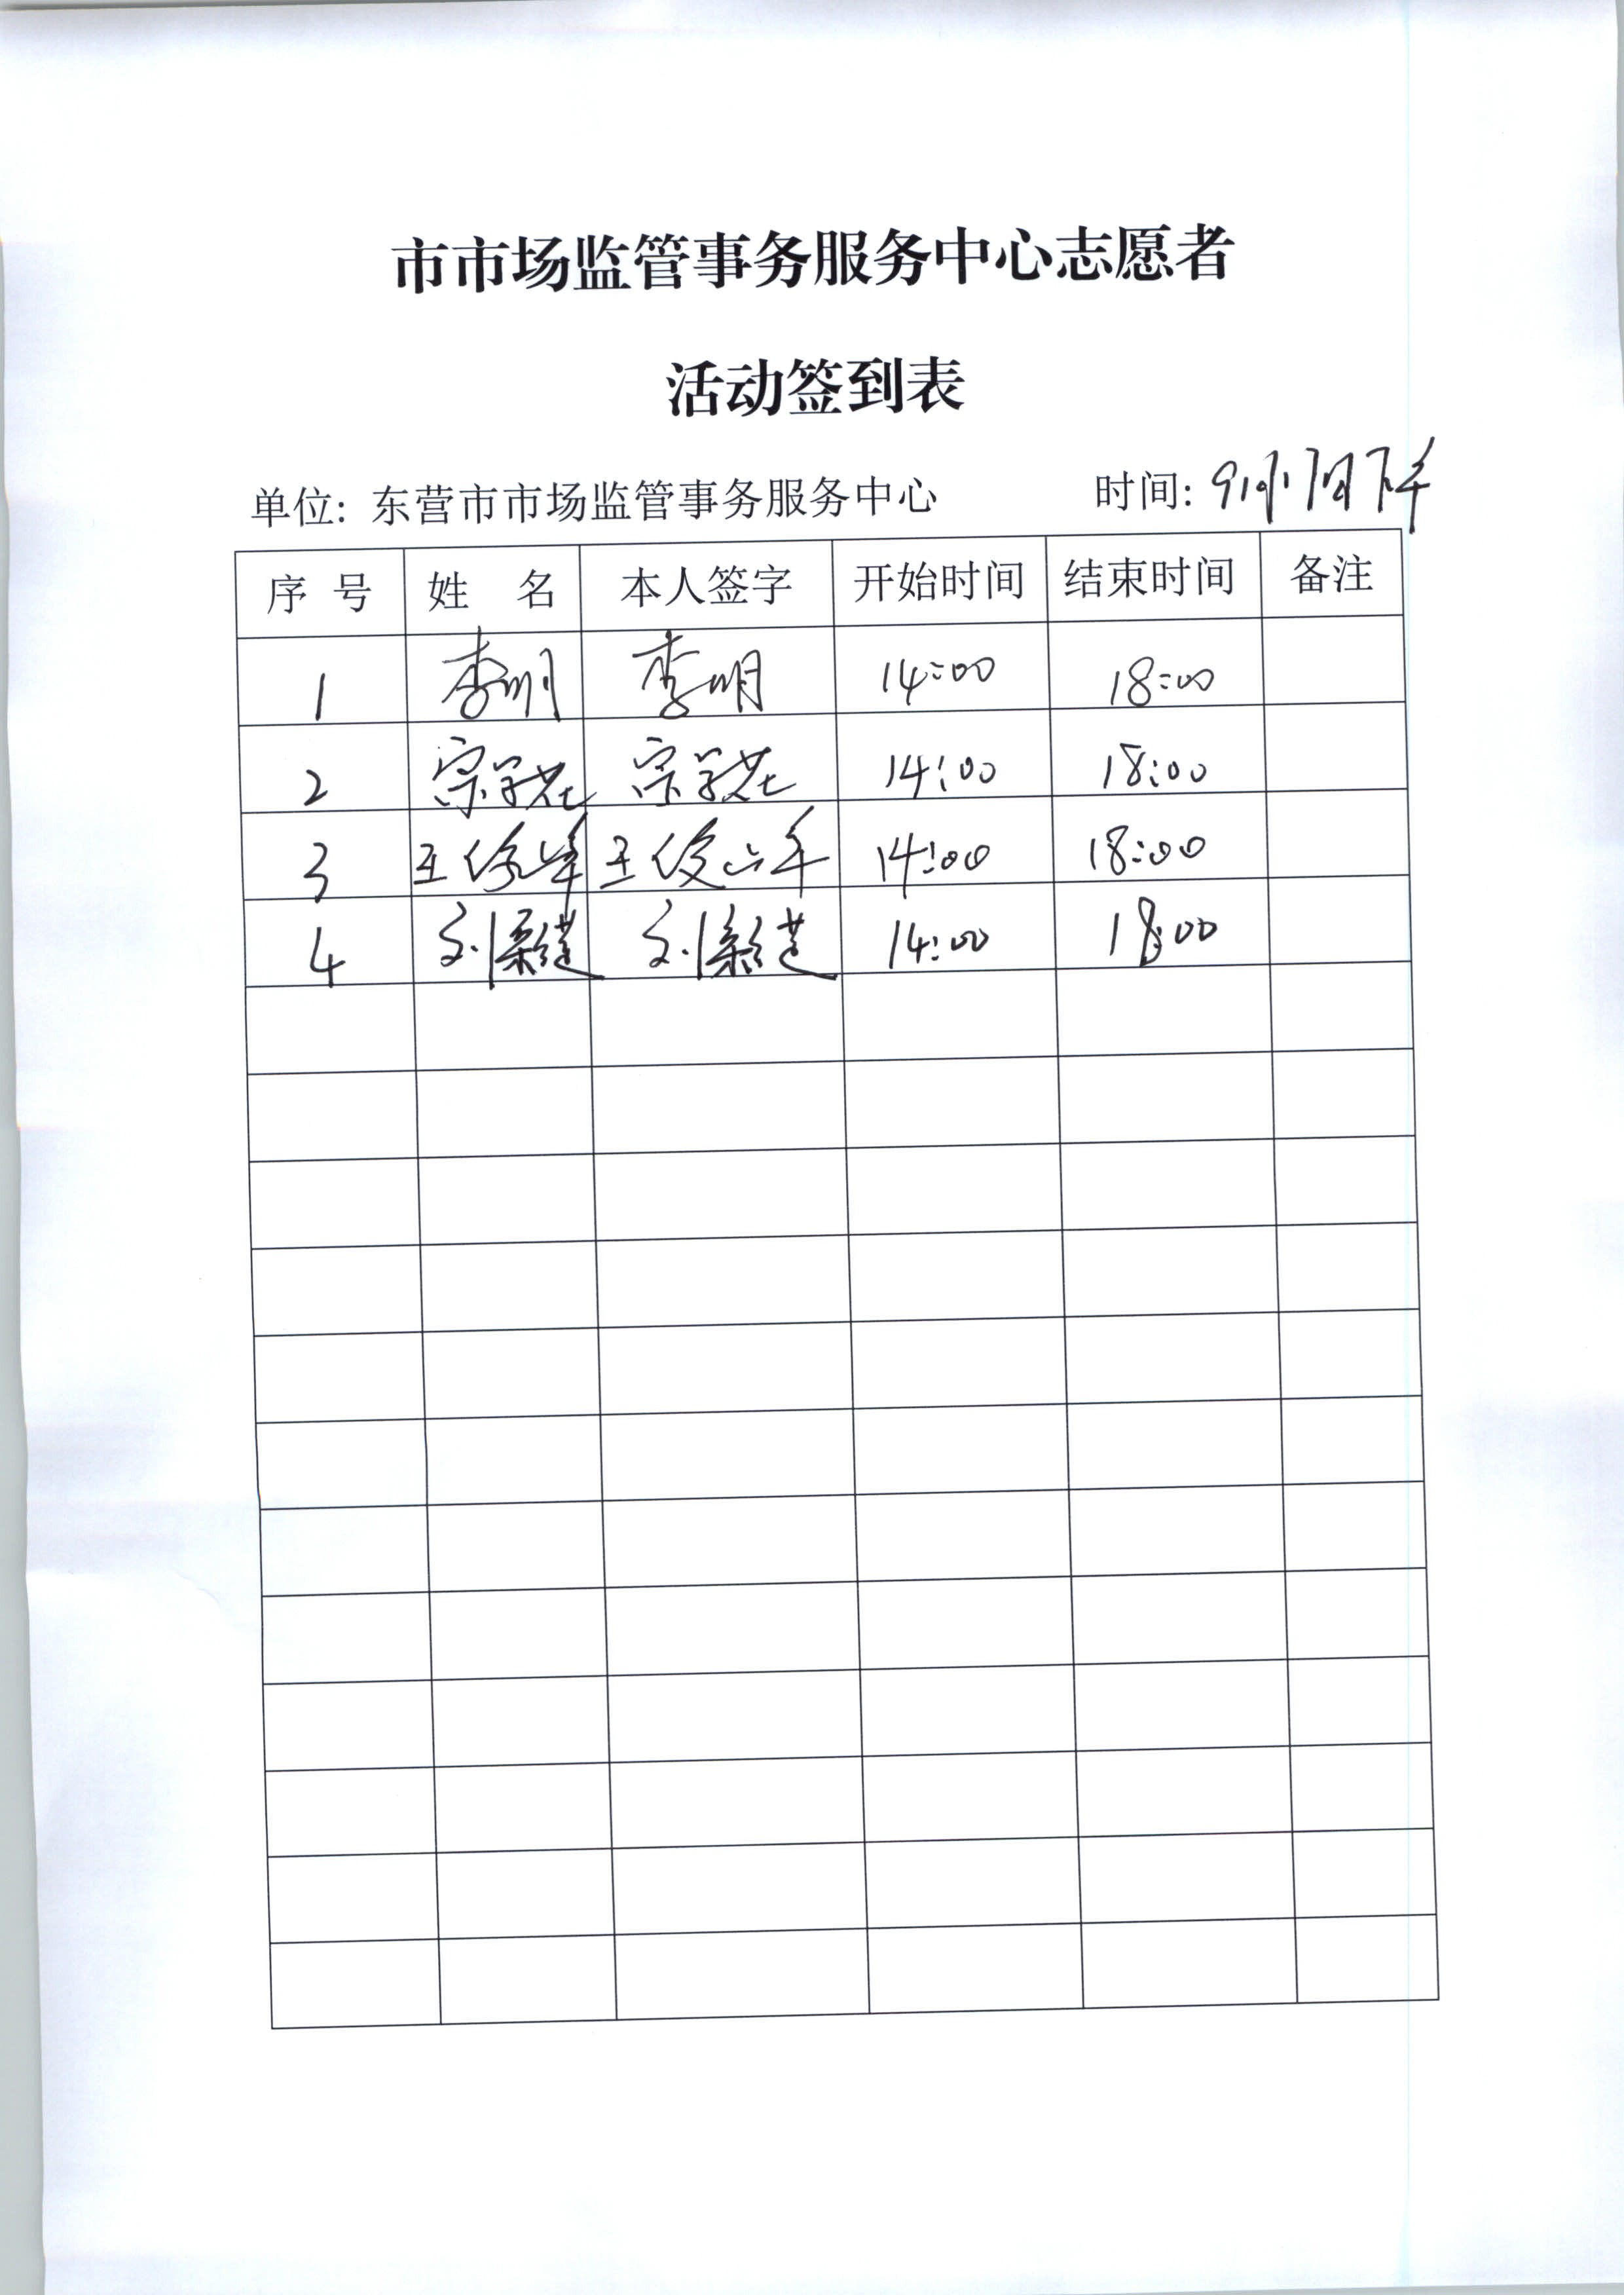 市市场监管事务服务中心志愿者
活动签到表
单位: 东营市市场监管事务服务中心 时间: 9月17日下午
序 号 姓 名 本人签字 开始时间 结束时间 备注
1 李明 李明 14:00 18:00
2 宗学花 宗学花 14:00 18:00
3 王俊峰 王俊峰 14:00 18:00
4 刘 14:00 18:00